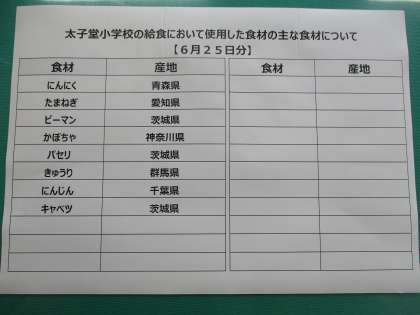 太子堂小学校の給食において使用した食材の主な食材について
【６月２５日分】
食材 産地 食材 産地
にんにく 青森県
たまねぎ 愛知県
ピーマン 茨城県
かぼちゃ 神奈川県
パセリ 茨城県
きゅうり 群馬県
にんじん 千葉県
キャベツ 茨城県